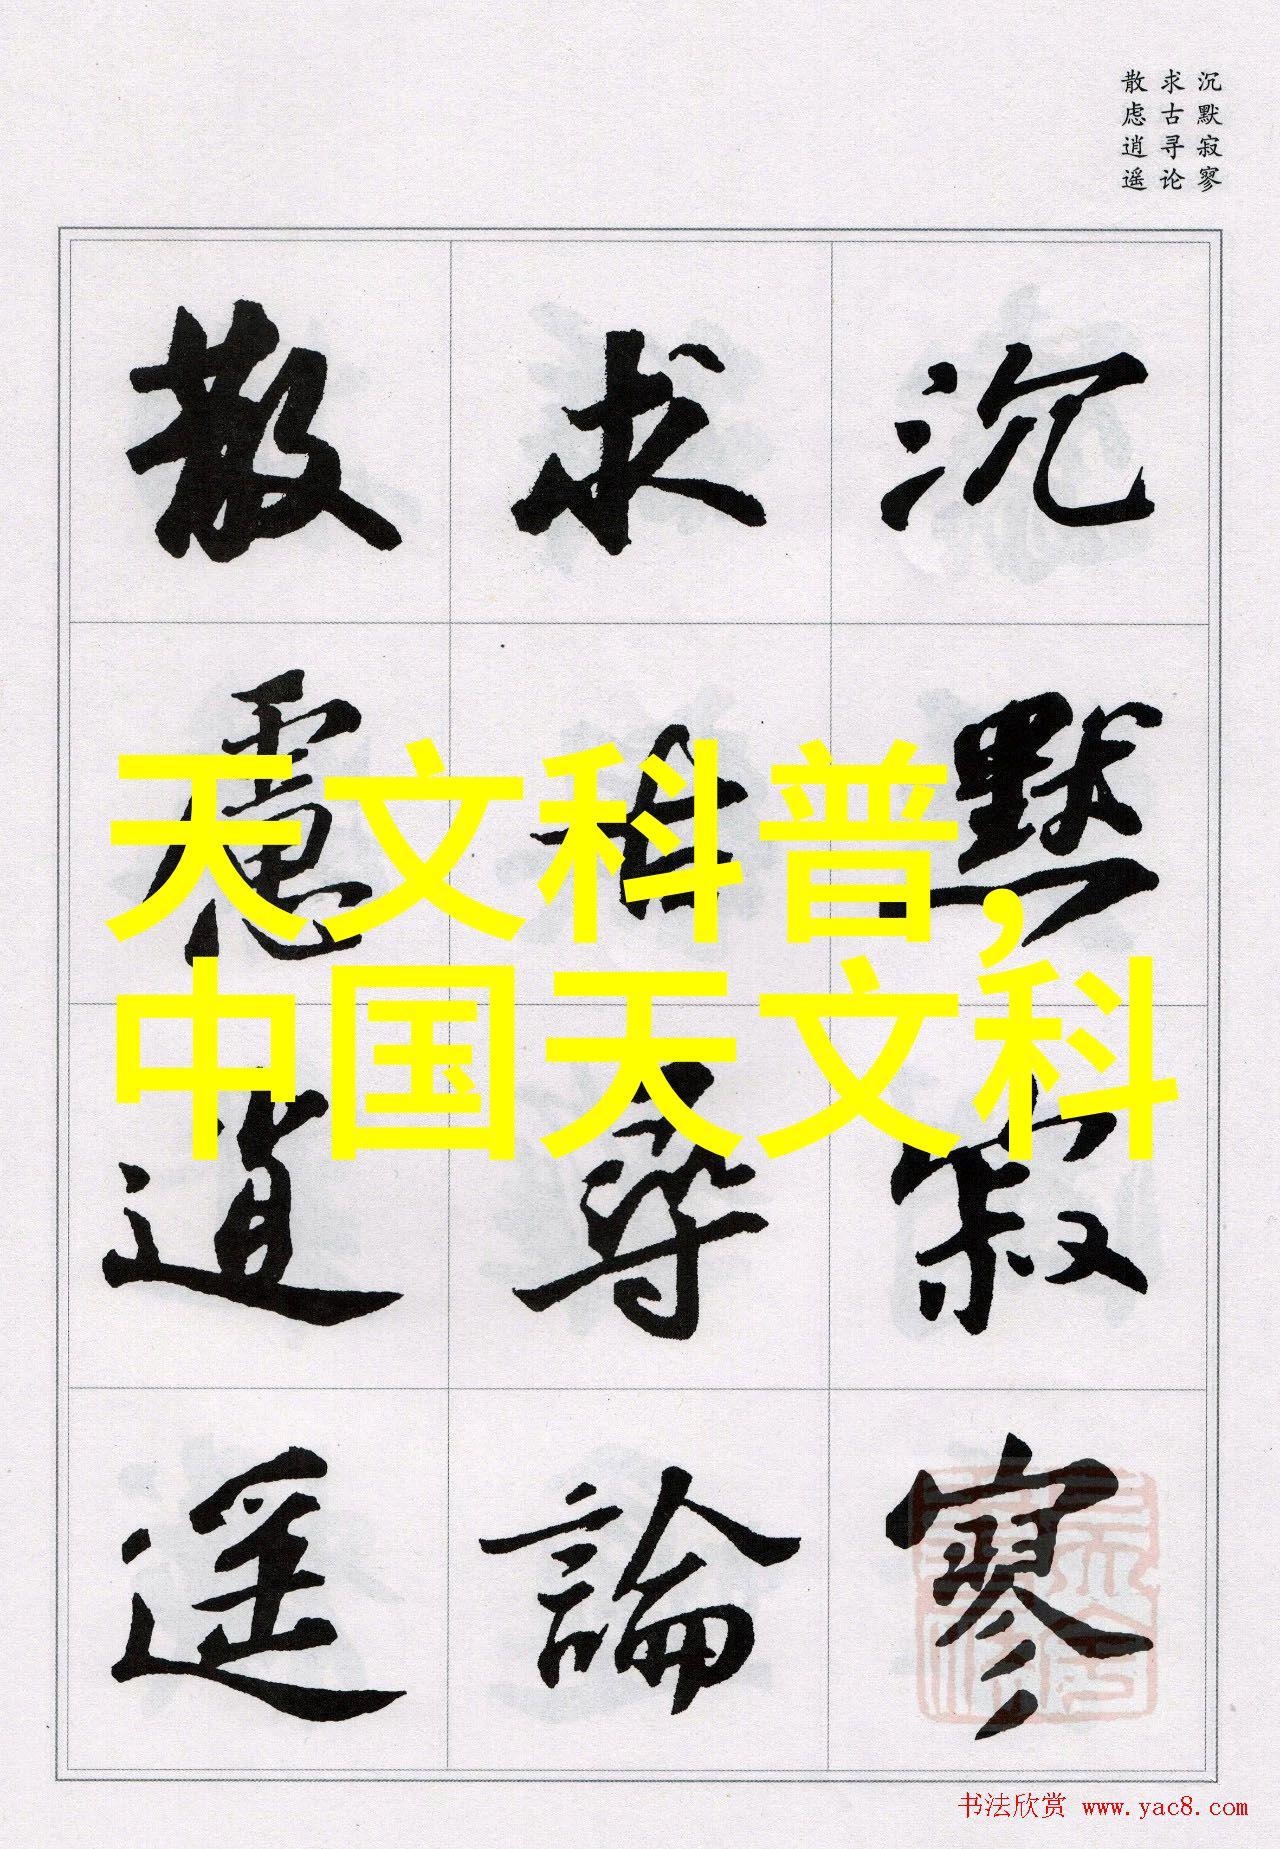 沉默寂寥
求古寻论
散虑逍遥
沉默寂寥
求古尋論
散慮逍遥
天文科普，
中国天文科
书法欣赏 www.yac8.com